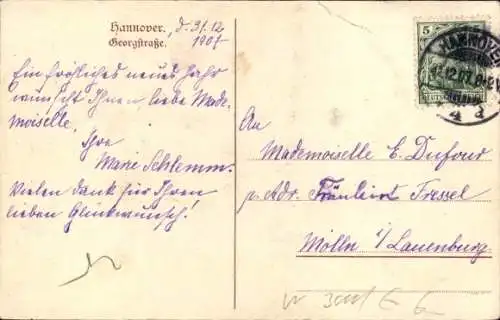 Hannover. d. 31.12
Georgstraße. 1907
Ein fröhliches neues Jahr
wünscht Ihnen, liebe Made-
moiselle,
Ihre
Marie Schlemm.
Vielen Dank für Ihren
lieben Glückwunsch!
5
HANNOVER
12.07.
An
Mademoiselle E. Dufour
p. Adr. Fräulein Fressel
Mölln i/Lauenburg